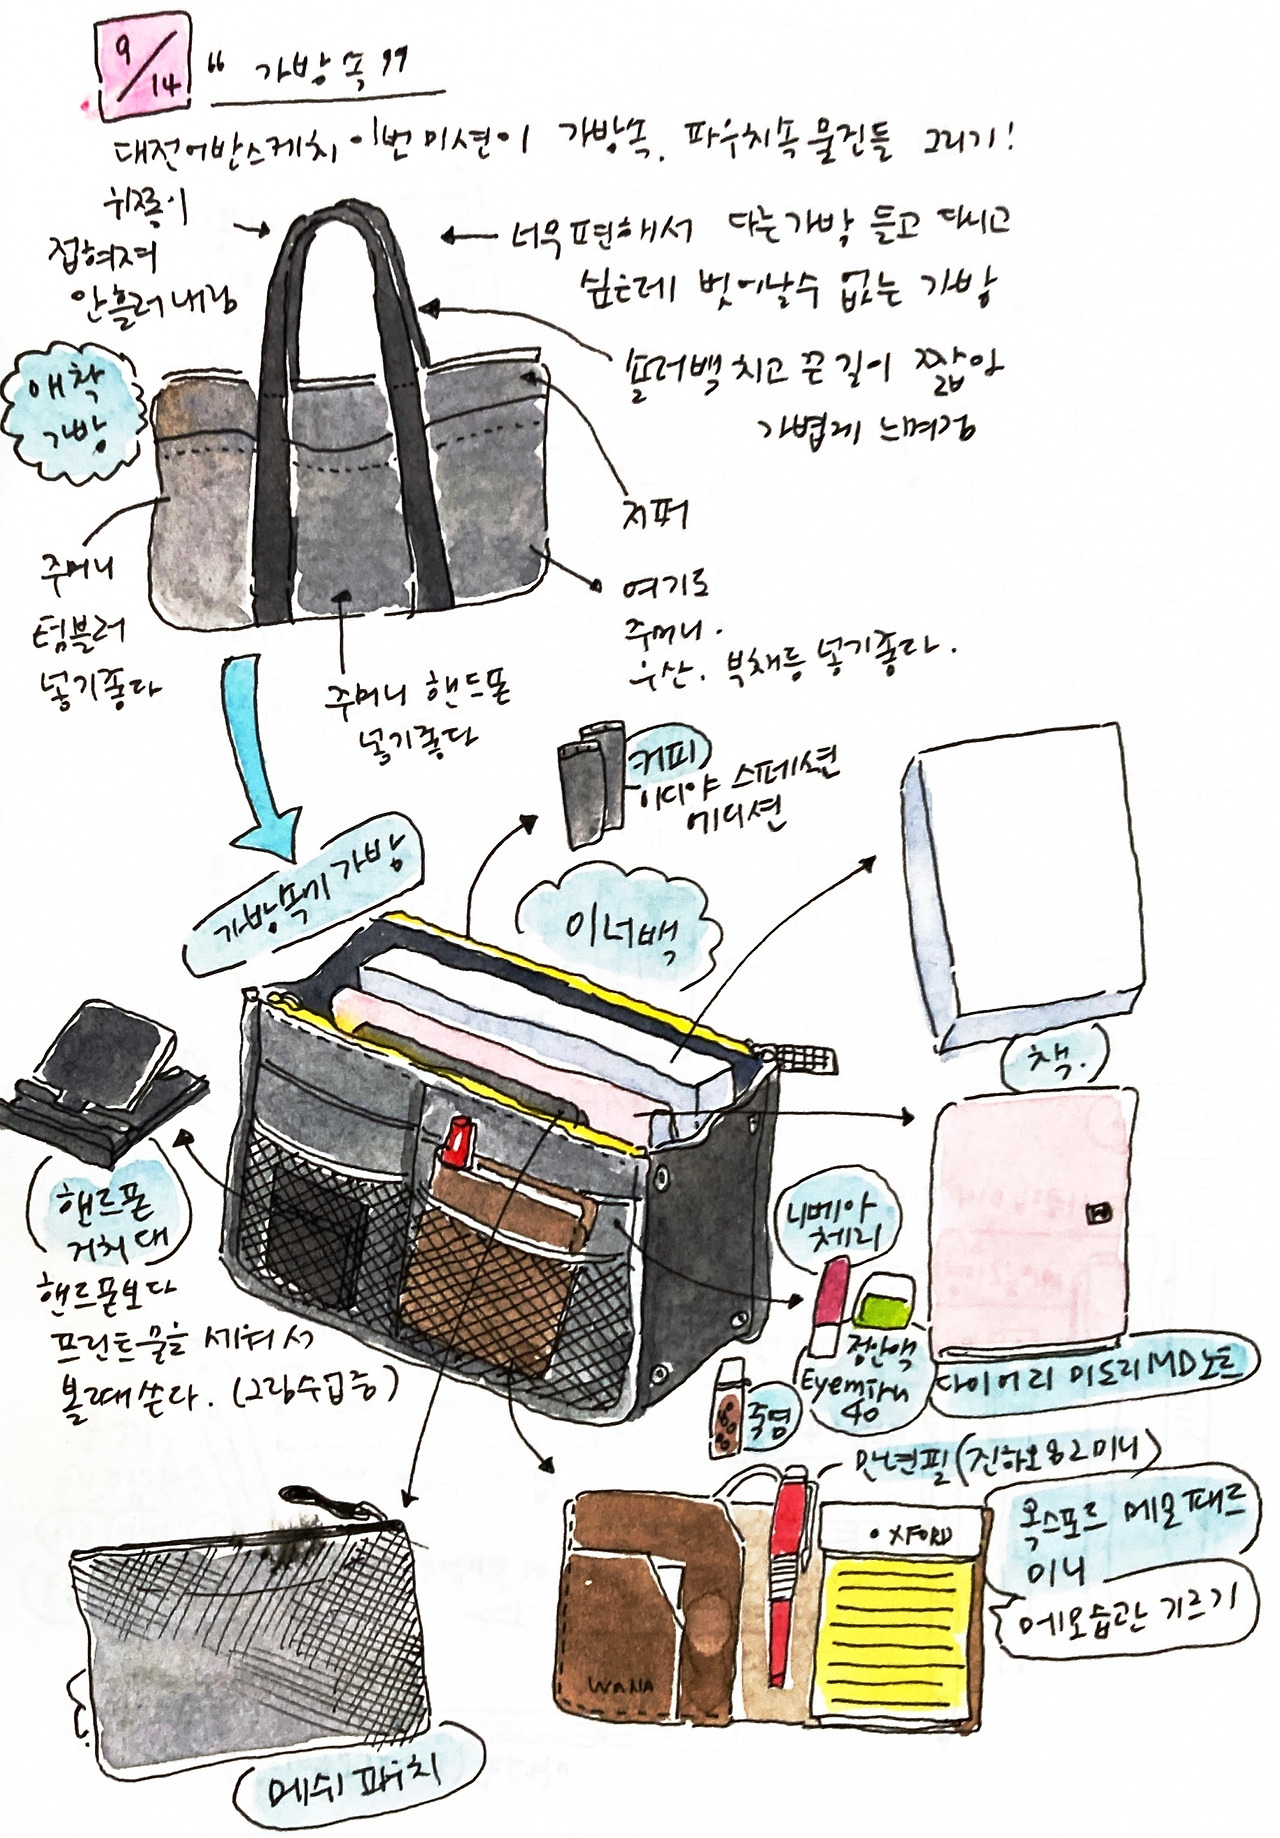 9/14
“ 가방속 ”
대전어반스케치 이번미션이 가방속. 파우치속 물건들 그리기!
위쪽이
접혀져
안흘러내림
너무편해서 다른가방 들고 다니고
싶은데 벗어날수 없는 가방
숄더백 치고 끈길이 짧아
가볍게 느껴짐
애착
가방
지퍼
주머니
텀블러
넣기좋다
여기도
주머니.
우산. 부채등 넣기좋다.
주머니 핸드폰
넣기좋다
커피
이디야 스페셜
에디션
가방속 가방
이너백
책.
핸드폰
거치대
핸드폰보다
프린트물을 세워서
볼때쓴다. (그림수업중)
니베아
체리
점안액
Eyemiru
40
죽염
다이어리 미도리MD노트
만년필(진하오82미니)
옥스포드 메모패드
미니
메모습관 기르기
OXFORD
WANA
메쉬파우치